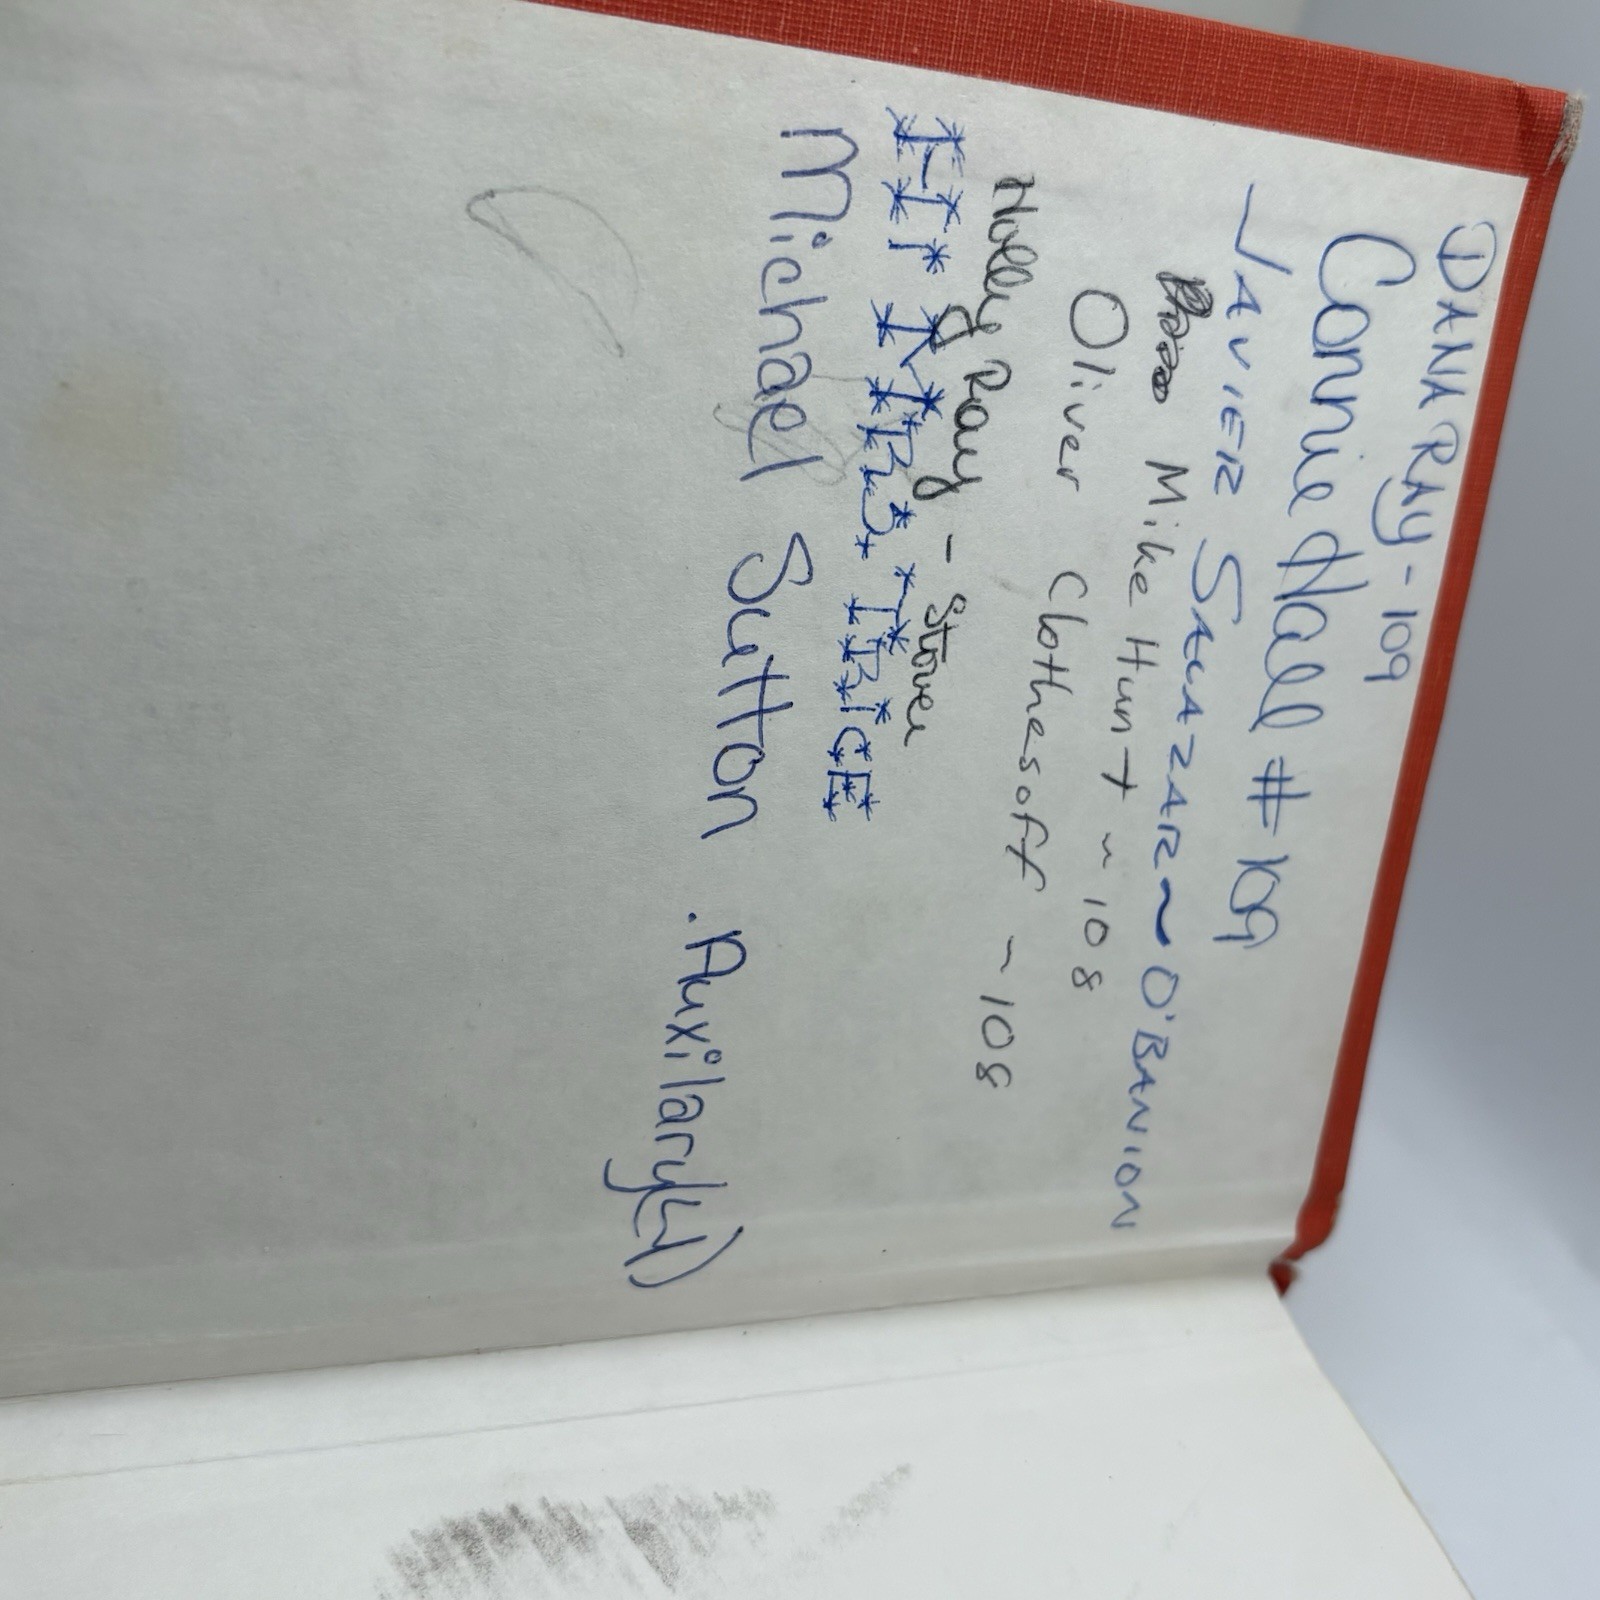 DANA RAY - 109
Connie Hall # 109
JAVIER SALAZAR ~ O'BANION
Mike Hunt ~ 108
Oliver Clothesoff ~ 108
Holly Ray - Stover
Michael Sutton . Auxilary(4)